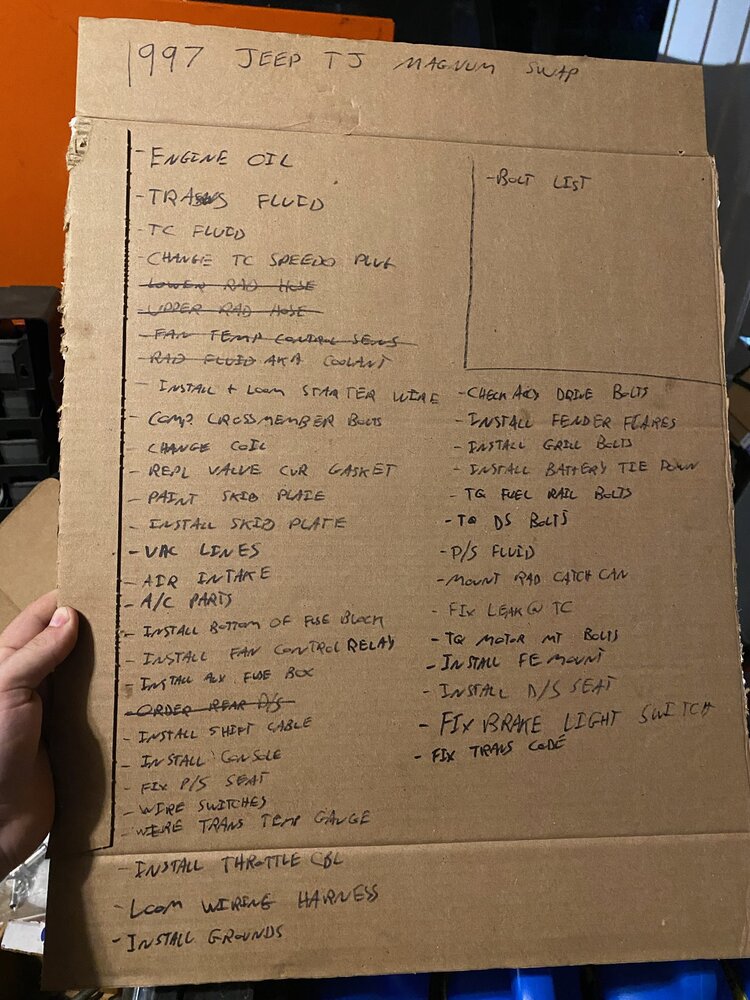 1997 JEEP TJ MAGNUM SWAP
- ENGINE OIL
- TRANS FLUID
- TC FLUID
- CHANGE TC SPEEDO PLUG
- LOWER RAD HOSE
- UPPER RAD HOSE
- FAN TEMP CONTROL SENS
- RAD FLUID AKA COOLANT
- INSTALL + LOOM STARTER WIRE
- COMP. CROSSMEMBER BOLTS
- CHANGE COIL
- REPL VALVE CVR GASKET
- PAINT SKID PLATE
- INSTALL SKID PLATE
- VAC LINES
- AIR INTAKE
- A/C PARTS
- INSTALL BOTTOM OF FUSE BLOCK
- INSTALL FAN CONTROL RELAY
- INSTALL AUX FUSE BOX
- ORDER REAR D/S
- INSTALL SHIFT CABLE
- INSTALL CONSOLE
- FIX P/S SEAT
- WIRE SWITCHES
- WIRE TRANS TEMP GAUGE
- INSTALL THROTTLE CBL
- LOOM WIRING HARNESS
- INSTALL GROUNDS
- BOLT LIST
- CHECK ACS DRIVE BOLTS
- INSTALL FENDER FLARES
- INSTALL GRILL BOLTS
- INSTALL BATTERY TIE DOWN
- TQ FUEL RAIL BOLTS
- TQ DS BOLTS
- P/S FLUID
- MOUNT RAD CATCH CAN
- FIX LEAK @ TC
- TQ MOTOR MT BOLTS
- INSTALL FE MOUNT
- INSTALL D/S SEAT
- FIX BRAKE LIGHT SWITCH
- FIX TRANS CODE